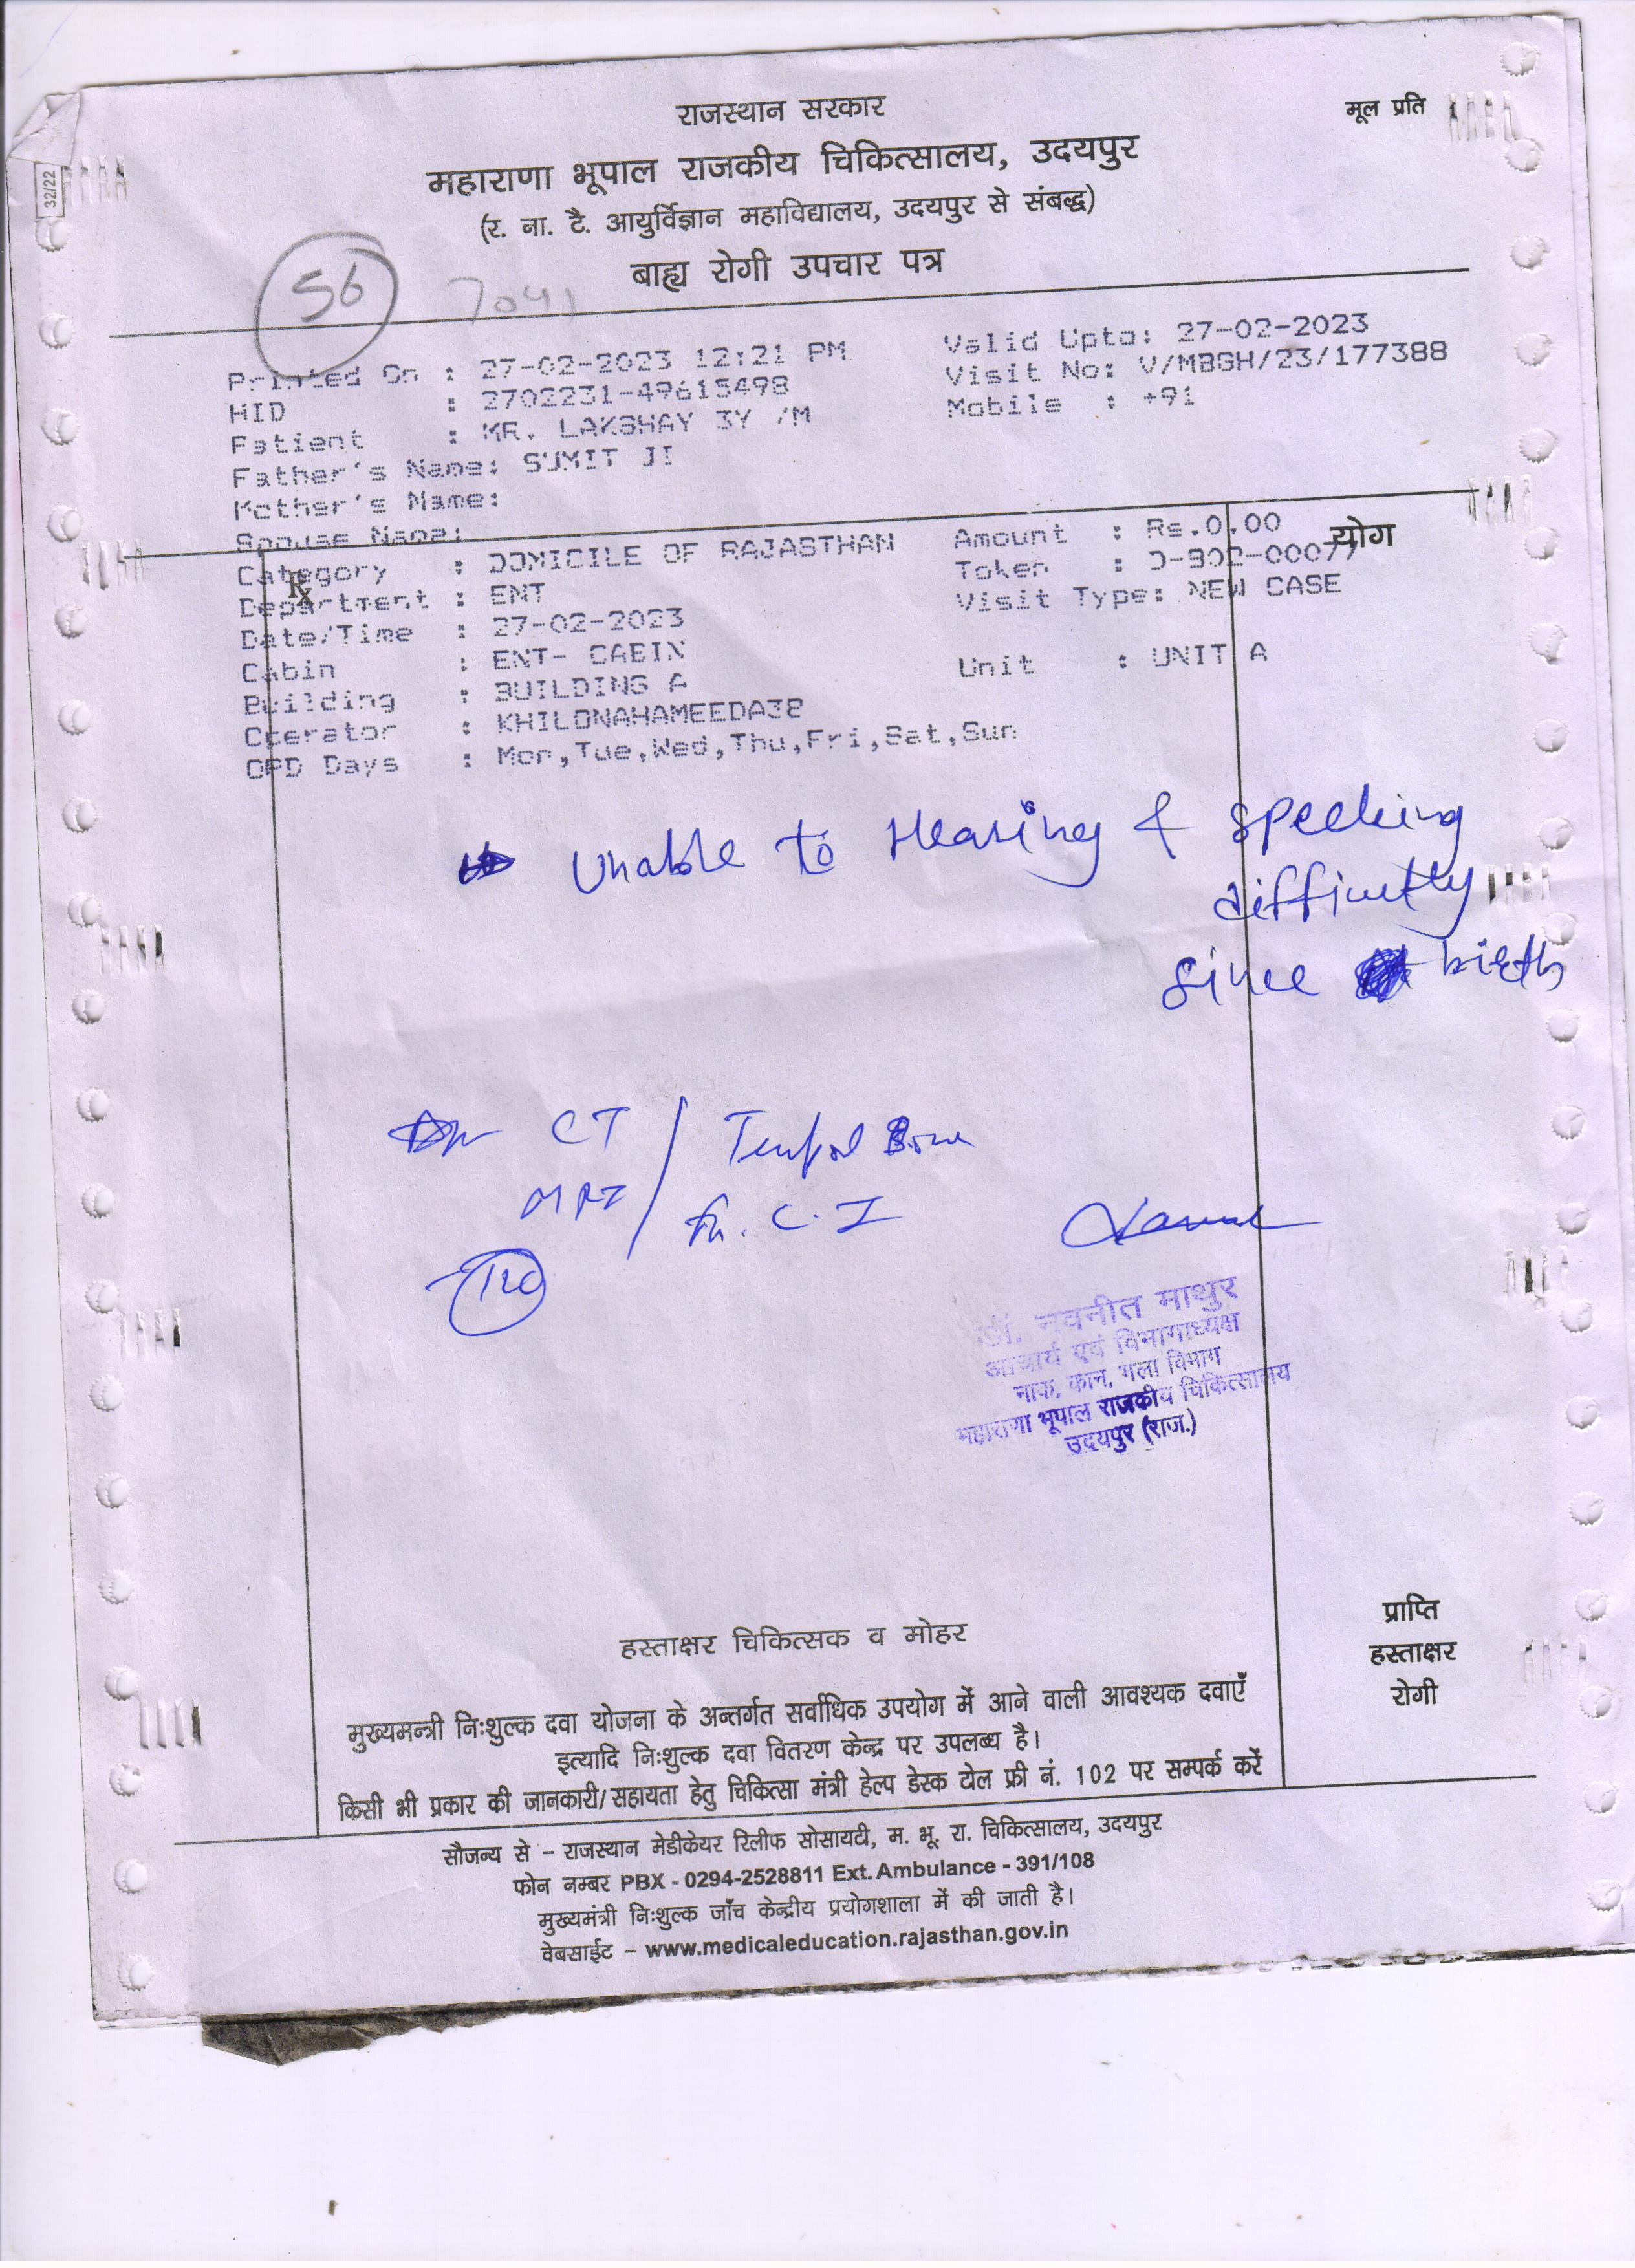 राजस्थान सरकार
मूल प्रति
महाराणा भूपाल राजकीय चिकित्सालय, उदयपुर
(र. ना. टै. आयुर्विज्ञान महाविद्यालय, उदयपुर से संबद्ध)
बाह्य रोगी उपचार पत्र
32/22
56
7041
Printed On : 27-02-2023 12:21 PM Valid Upto: 27-02-2023
HID : 2702231-49615498 Visit No: V/MBGH/23/177388
Patient : MR. LAKSHAY 3Y /M Mobile : +91
Father's Name: SUMIT JI
Mother's Name:
Spouse Name:
Category : DOMICILE OF RAJASTHAN Amount : Rs.0.00
योग
Department : ENT Token :
Date/Time : 27-02-2023 Visit Type: NEW CASE
Cabin : ENT- CABIN
Building : BUILDING A Unit : UNIT A
Operator : KHILONAHAMEEDA38
OPD Days : Mon,Tue,Wed,Thu,Fri,Sat,Sun
Rx
Unable to Hearing & speeking
difficultly
since birth
CT / Temporal Bone
MRI / for C.I
डॉ. नवनीत माथुर
आचार्य एवं विभागाध्यक्ष
नाक, कान, गला विभाग
महाराणा भूपाल राजकीय चिकित्सालय
उदयपुर (राज.)
हस्ताक्षर चिकित्सक व मोहर
प्राप्ति
हस्ताक्षर
रोगी
मुख्यमन्त्री निःशुल्क दवा योजना के अन्तर्गत सर्वाधिक उपयोग में आने वाली आवश्यक दवाएँ
इत्यादि निःशुल्क दवा वितरण केन्द्र पर उपलब्ध है।
किसी भी प्रकार की जानकारी/सहायता हेतु चिकित्सा मंत्री हेल्प डेस्क टोल फ्री नं. 102 पर सम्पर्क करें
सौजन्य से – राजस्थान मेडीकेयर रिलीफ सोसायटी, म. भू. रा. चिकित्सालय, उदयपुर
फोन नम्बर PBX - 0294-2528811 Ext. Ambulance - 391/108
मुख्यमंत्री निःशुल्क जाँच केन्द्रीय प्रयोगशाला में की जाती है।
वेबसाईट – www.medicaleducation.rajasthan.gov.in